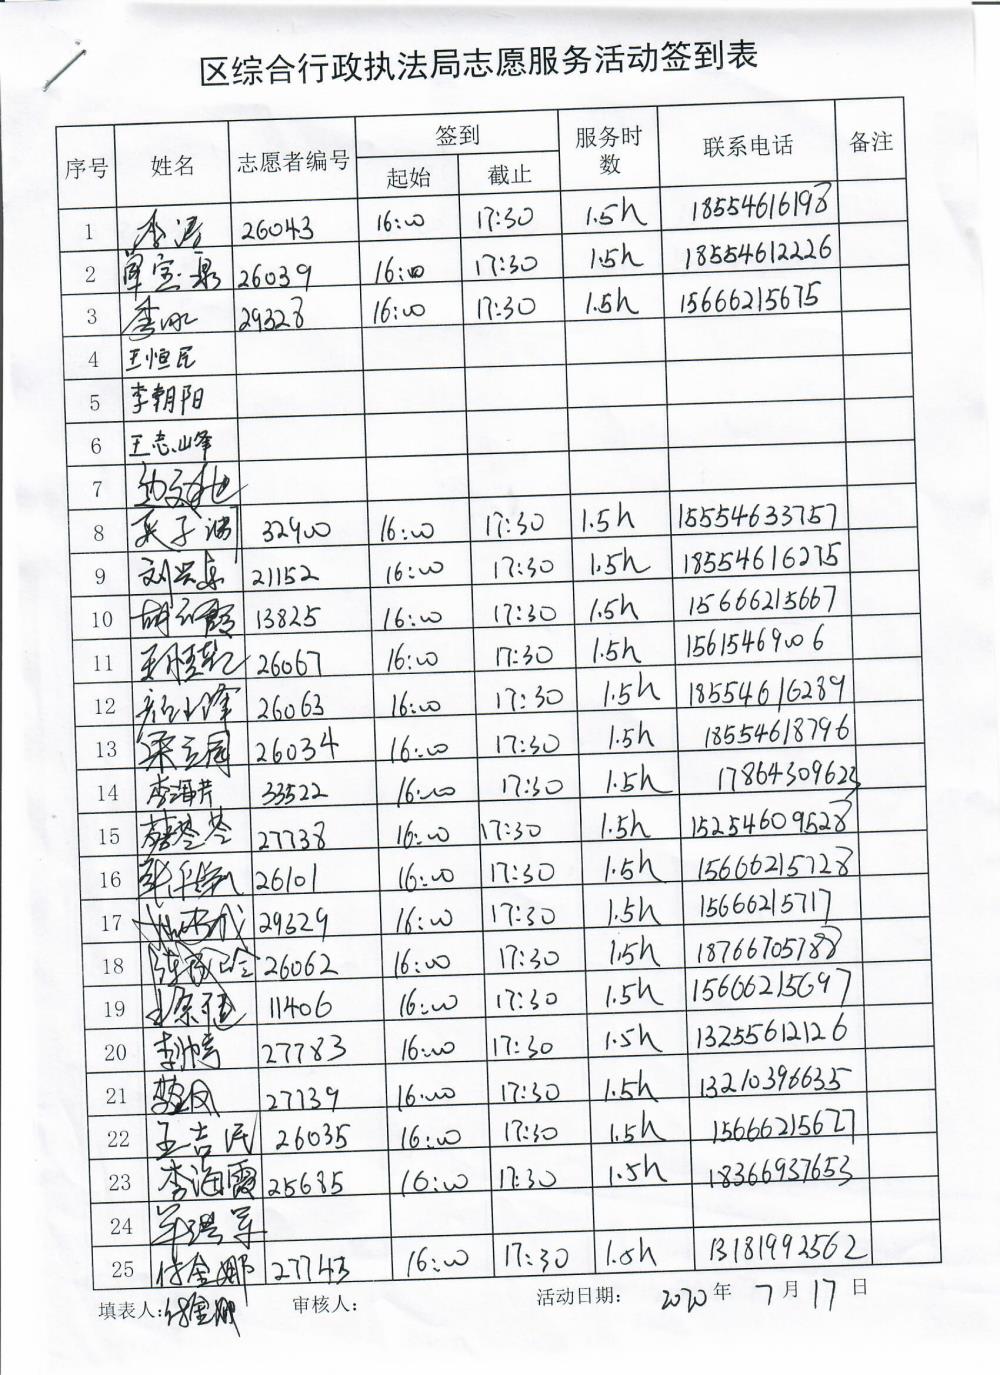 区综合行政执法局志愿服务活动签到表
序号 姓名 志愿者编号 签到 服务时数 联系电话 备注
起始 截止
1 李涛 26043 16:00 17:30 1.5h 18554616198
2 26039 16:00 17:30 1.5h 18554612226
3 29328 16:00 17:30 1.5h 15666215675
4 王恒民
5 李朝阳
6 王志峰
7
8 32900 16:00 17:30 1.5h 15554633757
9 21152 16:00 17:30 1.5h 18554616275
10 13825 16:00 17:30 1.5h 15666215667
11 26067 16:00 17:30 1.5h 15615469006
12 26063 16:00 17:30 1.5h 18554616289
13 26034 16:00 17:30 1.5h 18554618796
14 李海芹 33522 16:00 17:30 1.5h
15 27738 16:00 17:30 1.5h 15254609528
16 26101 16:00 17:30 1.5h 15666215728
17 29329 16:00 17:30 1.5h 15666215717
18 26062 16:00 17:30 1.5h 18766705788
19 11406 16:00 17:30 1.5h 15666215697
20 27783 16:00 17:30 1.5h 13255612126
21 27739 16:00 17:30 1.5h 13210396635
22 王吉民 26035 16:00 17:30 1.5h 15666215677
23 李海霞 25685 16:00 17:30 1.5h 18366937653
24
25 付金娜 27743 16:00 17:30 1.5h 13181992562
填表人:付金娜 审核人: 活动日期: 2020 年 7 月 17 日